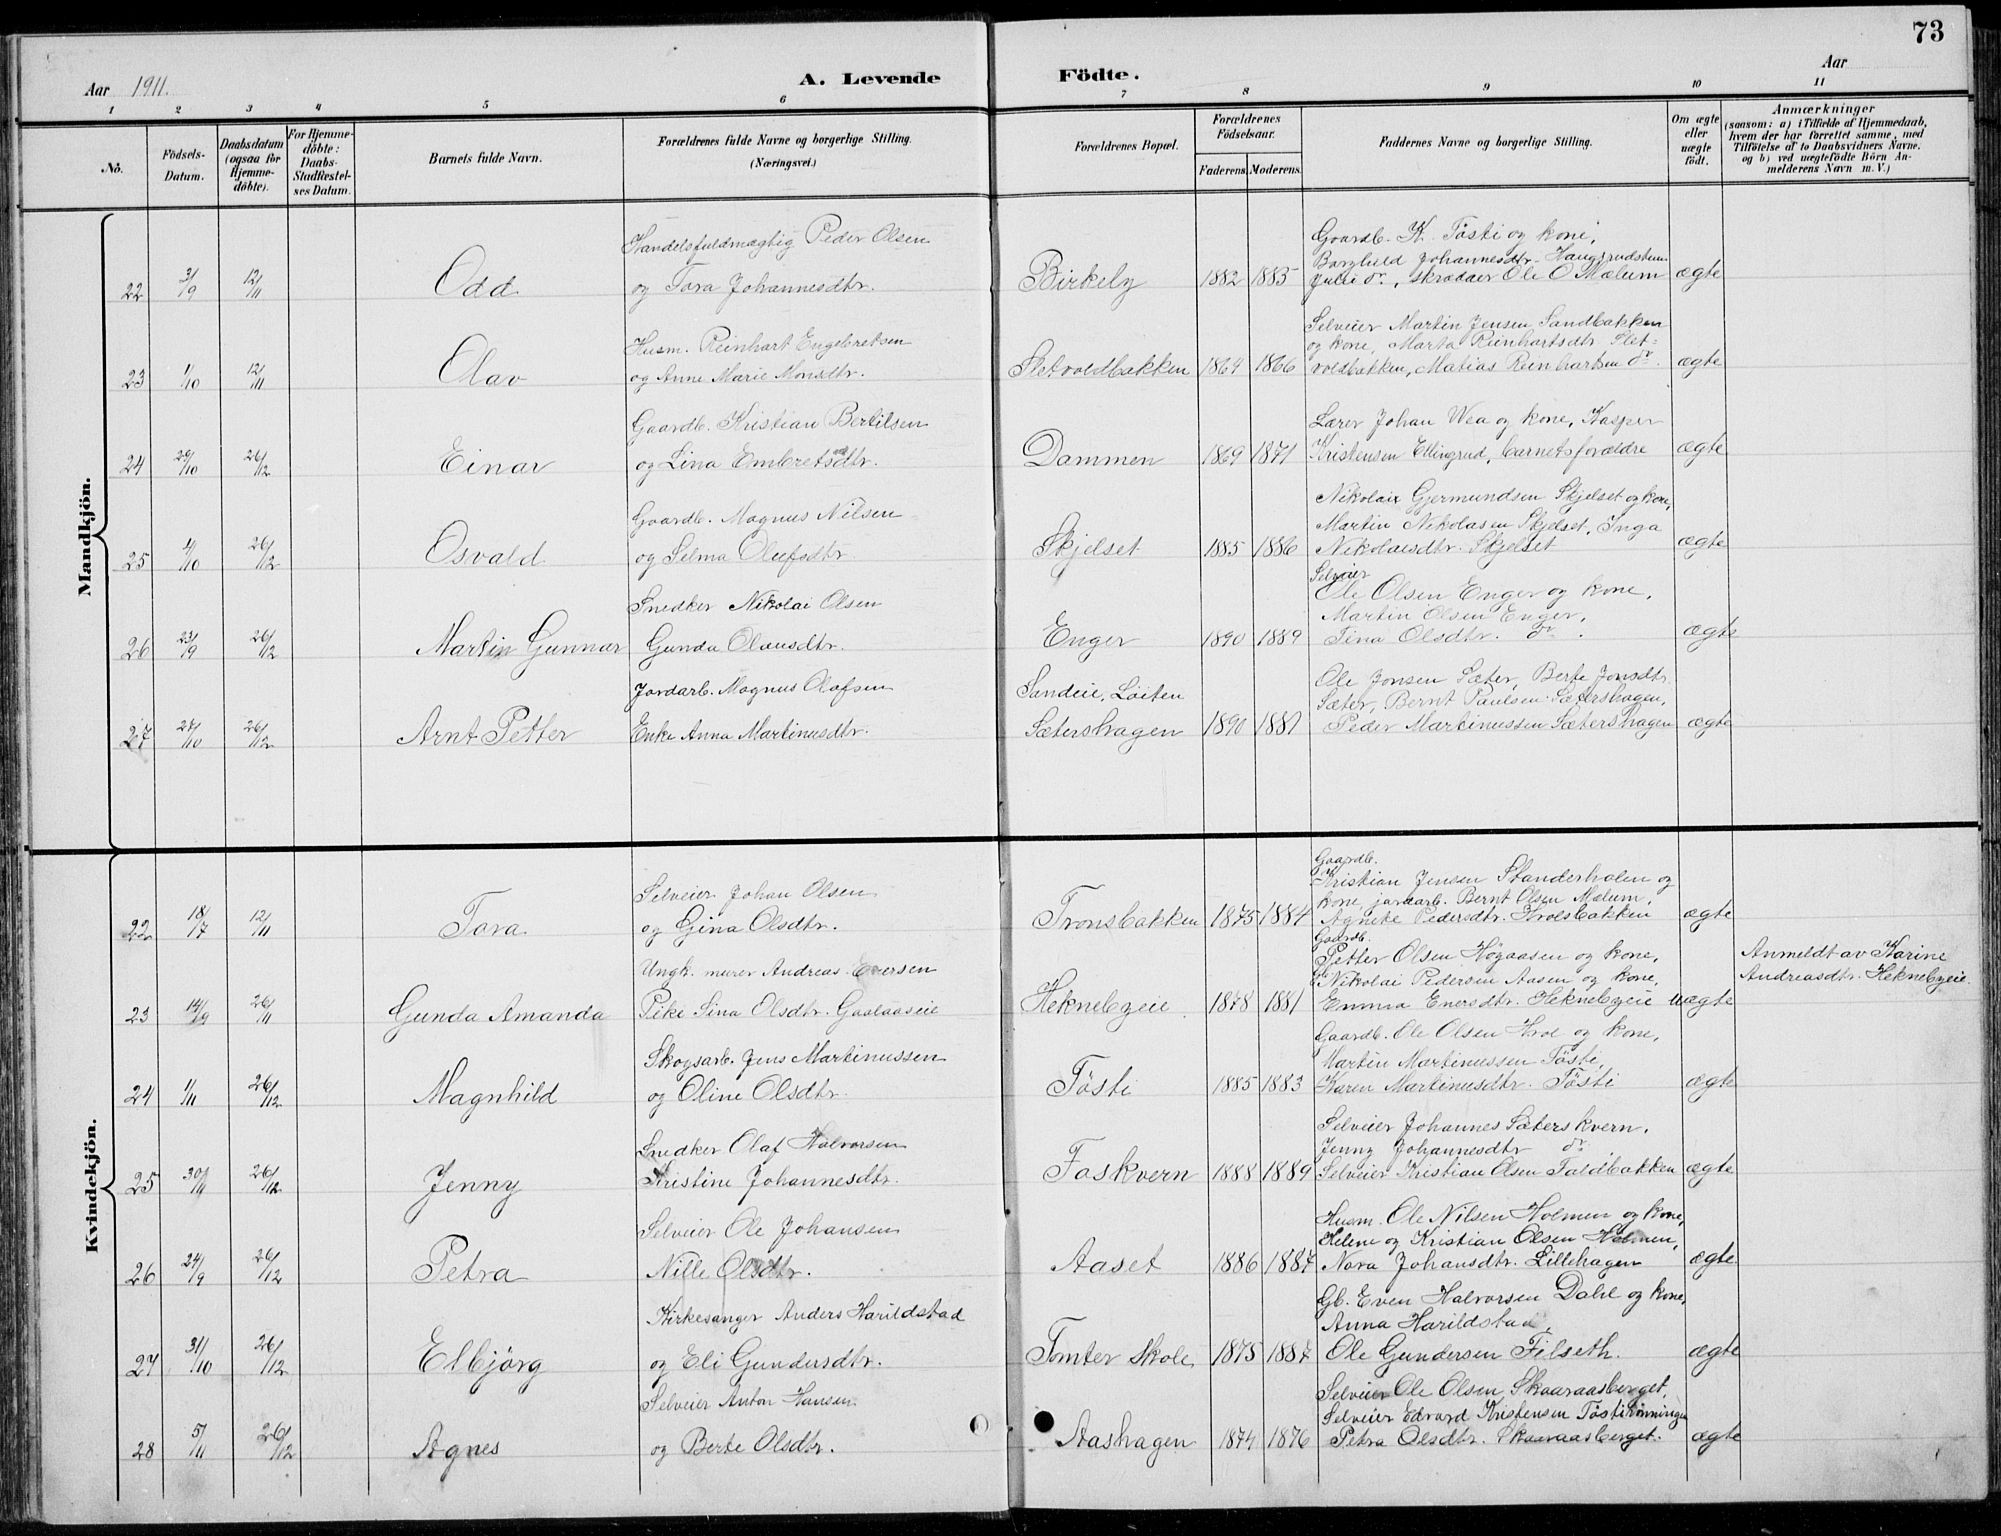 73
Aar 1911.
A. Levende
Födte.
Aar
1 2 3 4 5 6 7 8 9 10 11
No.
Födsels-Datum.
Daabsdatum (ogsaa for Hjemme-döbte).
For Hjemme-döbte: Daabs-Stadfæstel-ses Datum.
Barnets fulde Navn.
Forældrenes fulde Navne og borgerlige Stilling. (Næringsvei.)
Forældrenes Bopæl.
Forældrenes Födselsaar.
Faderens. Moderens.
Faddernes Navne og borgerlige Stilling.
Om ægte eller uægte födt.
Anmærkninger
(saasom: a) i Tilfælde af Hjemmedaab,
hvem der har forrettet samme, med
Tilföielse af to Daabsvidners Navne.
og b) ved uægtefödte Börn An-
melderens Navn m. V.)
Mandkjön.
Handelsfuldmægtig Peder Olsen
Gaardb. K. Tösti og kone,
Borghild Johannesdtr. Haugsrudstuen
22 3/9 12/11 Odd og Tora Johannesdtr. Birkely 1882 1885 Julie do., skrædder Ole O Mælum ægte
Husm. Reinhart Engebretsen
Selveier Martin Jensen Sandbakken
og kone, Marta Reinhartsdtr Slet-
23 1/10 12/11 Olav og Anne Marie Monsdtr. Sletvoldbakken 1864 1866 voldbakken, Matias Reinhartsen do. ægte
Gaardb. Kristian Bertilsen
Lærer Johan Wea og kone, Kasper
24 29/10 26/12 Einar og Lina Embretsdtr. Dammen 1869 1871 Kristensen Ellingrud, barnets forældre ægte
Gaardb. Magnus Nilsen
Nikolai Gjermundsen Skjelset og kone,
Martin Nikolaisen Skjelset, Inga
25 4/10 26/12 Osvald og Selma Olufsdtr. Skjelset 1885 1886 Nikolaisdtr. Skjelset ægte
Selveier
Snedker Nikolai Olsen
Ole Olsen Enger og kone,
Martin Olsen Enger,
26 23/9 26/12 Martin Gunnar Gunda Olausdtr. Enger 1890 1889 Tina Olsdtr. do. ægte
Jordarb. Magnus Olafsen
Sandeie, Löiten
Ole Jonsen Sæter, Berte Jonsdtr.
Sæter, Bernt Paulsen Sætershagen,
27 27/10 26/12 Arnt Petter Enke Anna Martinusdtr. Sætershagen 1890 1881 Peder Martinussen Sætershagen ægte
Kvindekjön.
Gaardb.
Selveier Johan Olsen
Kristian Jensen Standerholen og
kone, jordarb. Bernt Olsen Mælum,
22 18/7 12/11 Tora og Gina Olsdtr. Tronsbakken 1875 1884 Agnete Pedersdtr. Krolsbakken ægte
Gaardb.
Ungk. murer Andreas Eversen
Petter Olsen Högaasen og kone,
Gb. Nikolai Pedersen Aasen og kone,
Anmeldt av Karine
Andreasdtr. Heknebyeie.
23 14/9 26/11 Gunda Amanda Pike Sina Olsdtr. Gaalaaseie Heknebyeie 1878 1881 Emma Enersdtr. Heknebyeie uægte
Skogsarb. Jens Martinussen
Gaardb. Ole Olsen Krol og kone,
Martin Martinussen Tösti,
24 1/11 26/12 Magnhild og Oline Olsdtr. Tösti 1885 1883 Karen Martinusdtr. Tösti ægte
Snedker Olaf Halvorsen
Selveier Johannes Sæterskvern,
Jenny Johannesdtr do.
25 30/11 26/12 Jenny Kristine Johannesdtr. Faskvern 1888 1889 Selveier Kristian Olsen Faldbakken ægte
Selveier Ole Johansen
Husm. Ole Nilsen Holmen og kone,
Helene og Kristian Olsen Holmen,
26 24/9 26/12 Petra Nille Olsdtr. Aaset 1886 1887 Nora Johansdtr. Lillehagen ægte
Kirkesanger Anders Harildstad
Gb. Even Halvorsen Dahl og kone,
Anna Harildstad,
27 31/10 26/12 Elbjörg og Eli Gundersdtr. Tomter Skole 1875 1887 Ole Gundersen Filseth. ægte
Selveier Anton Hansen
Selveier Ole Olsen Skaaraasberget,
Selveier Edvard Kristensen Tösti
28 5/11 26/12 Agnes og Berte Olsdtr. Aashagen 1874 1876 Petra Olsdtr. Skaaraasberget. ægte